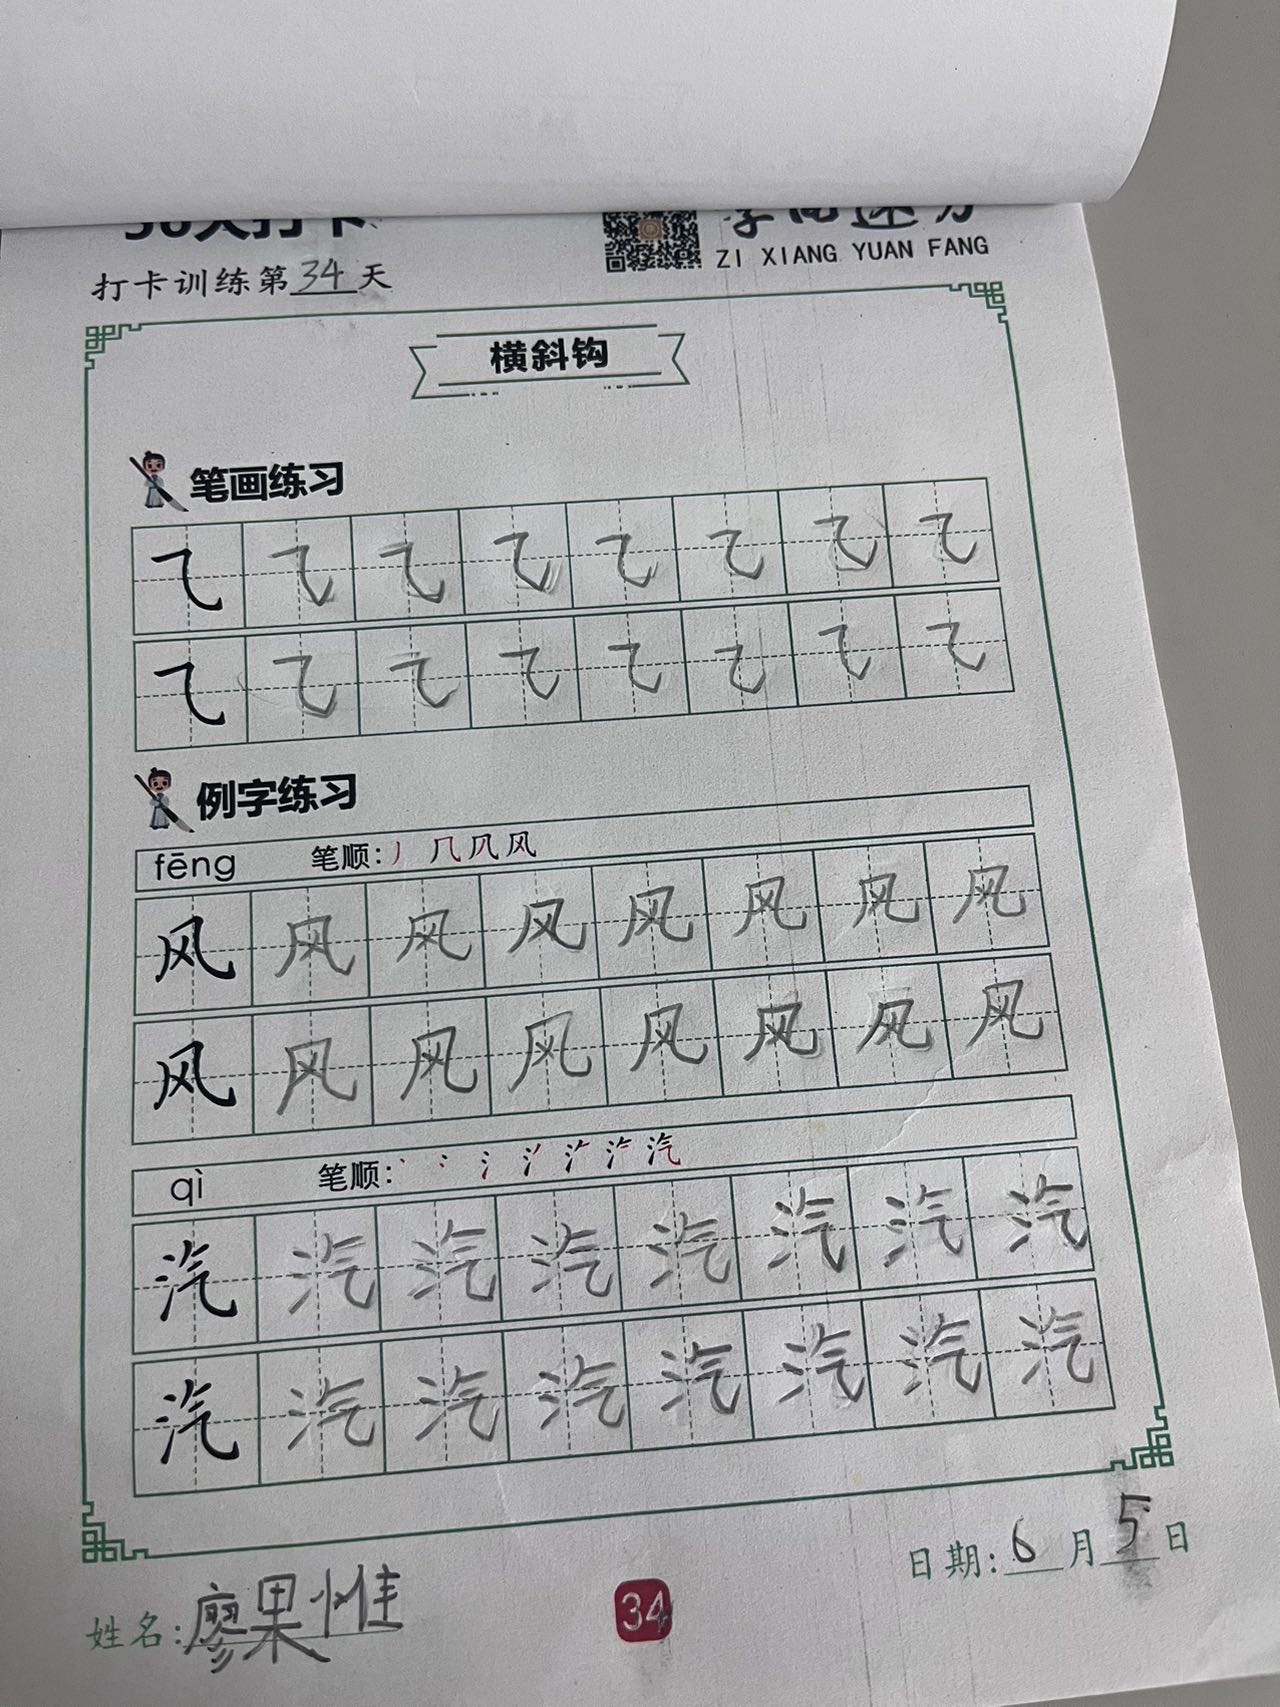 打卡训练第34天
ZI XIANG YUAN FANG
横斜钩
笔画练习
㇈ ㇈ ㇈ ㇈ ㇈ ㇈ ㇈ ㇈
㇈ ㇈ ㇈ ㇈ ㇈ ㇈ ㇈ ㇈
例字练习
fēng 笔顺: 丿 几 凤 风
风 风 风 风 风 风 风 风
风 风 风 风 风 风 风 风
qì 笔顺: 汽
汽 汽 汽 汽 汽 汽 汽 汽
汽 汽 汽 汽 汽 汽 汽 汽
日期: 6月5日
姓名: 廖果惟
34